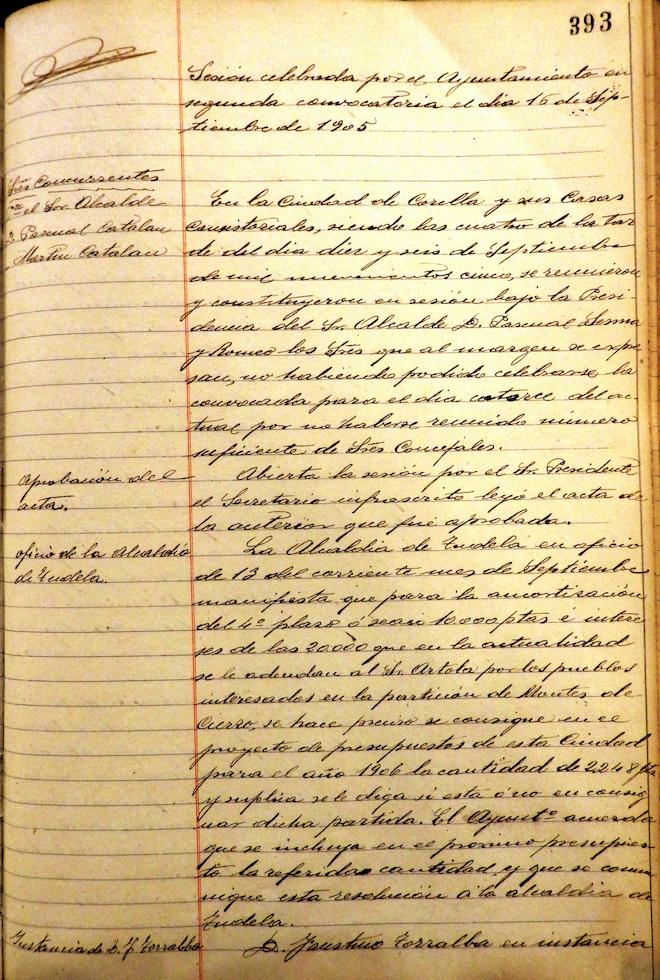 393
Sesión celebrada por el Ayuntamiento en
segunda convocatoria el dia 16 de Sep-
tiembre de 1905
Sres Concurrentes
el Sr. Alcalde
D. Pascual Catalan
Martin Catalan
En la Ciudad de Corella y sus Casas
Consistoriales, siendo las cuatro de la tar
de del dia diez y seis de Septiembre
de mil nuevecientos cinco, se reunieron
y constituyeron en sesión bajo la Presi-
dencia del Sr. Alcalde D. Pascual
y Romeo los Sres que al margen se expre
san, no habiendo podido celebrarse la
convocada para el dia catorce del ac-
tual por no haberse reunido número
suficiente de Sres Concejales.
Aprobación del
acta.
Abierta la sesión por el Sr. Presidente
el Secretario infrascrito leyó el acta de
la anterior que fué aprobada.
oficio de la Alcaldia
de Tudela.
La Alcaldia de Tudela en oficio
de 13 del corriente mes de Septiembre
manifiesta que para la amortisación
del 4º plaso ó sean 10.000 ptas é intere
ses de las 20000 que en la actualidad
se le adeudan al Sr. Artola por los pueblos
interesados en la partición de Montes de
Cierzo, se hace preciso se consigne en el
proyecto de presupuestos de esta Ciudad
para el año 1906 la cantidad de 2248 ptas
y suplica se le diga si está ó no en consig
nar dicha partida. El Ayuntº acuerda
que se incluya en el próximo presupues
to la referida cantidad y que se comu
nique esta resolución á la alcaldia de
Tudela.
Instancia de D. F. Torralba
D. Faustino Torralba en instancia